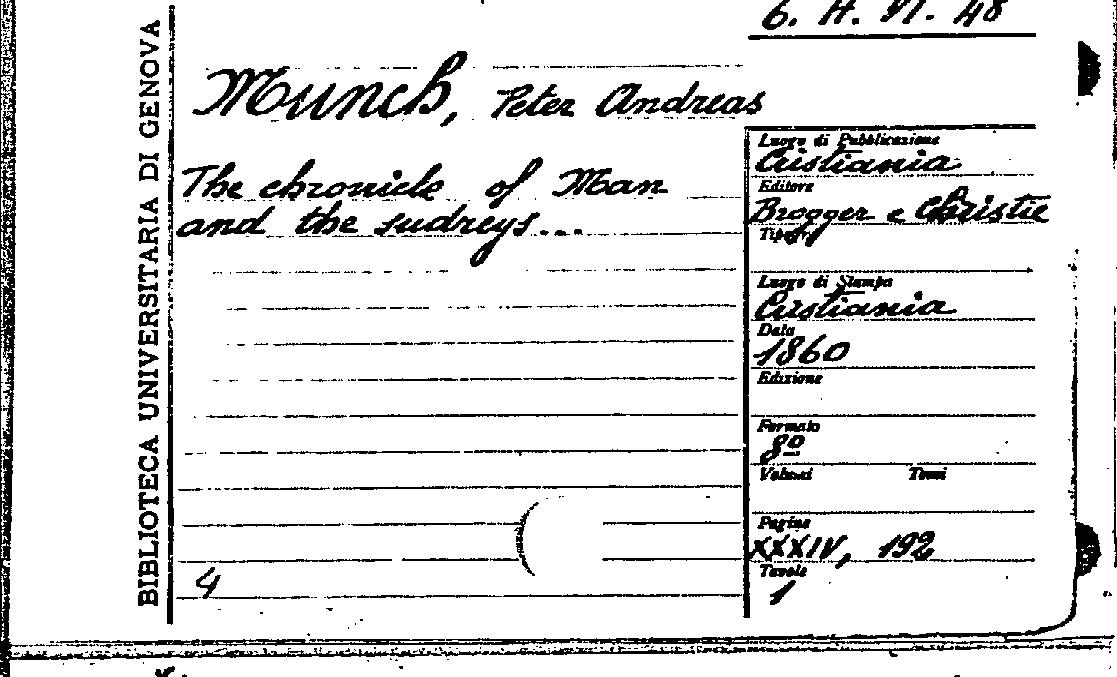 6. H. VI. 48
BIBLIOTECA UNIVERSITARIA DI GENOVA
Munch, Peter Andreas
The chronicle of Man
and the sudreys...
4
Luogo di Pubblicazione
Cristiania
Editore
Brogger e Christie
Tipogr.
Luogo di Stampa
Cristiania
Data
1860
Edizione
Formato
8º
Volumi Tomi
Pagine
XXXIV, 192
Tavole
1